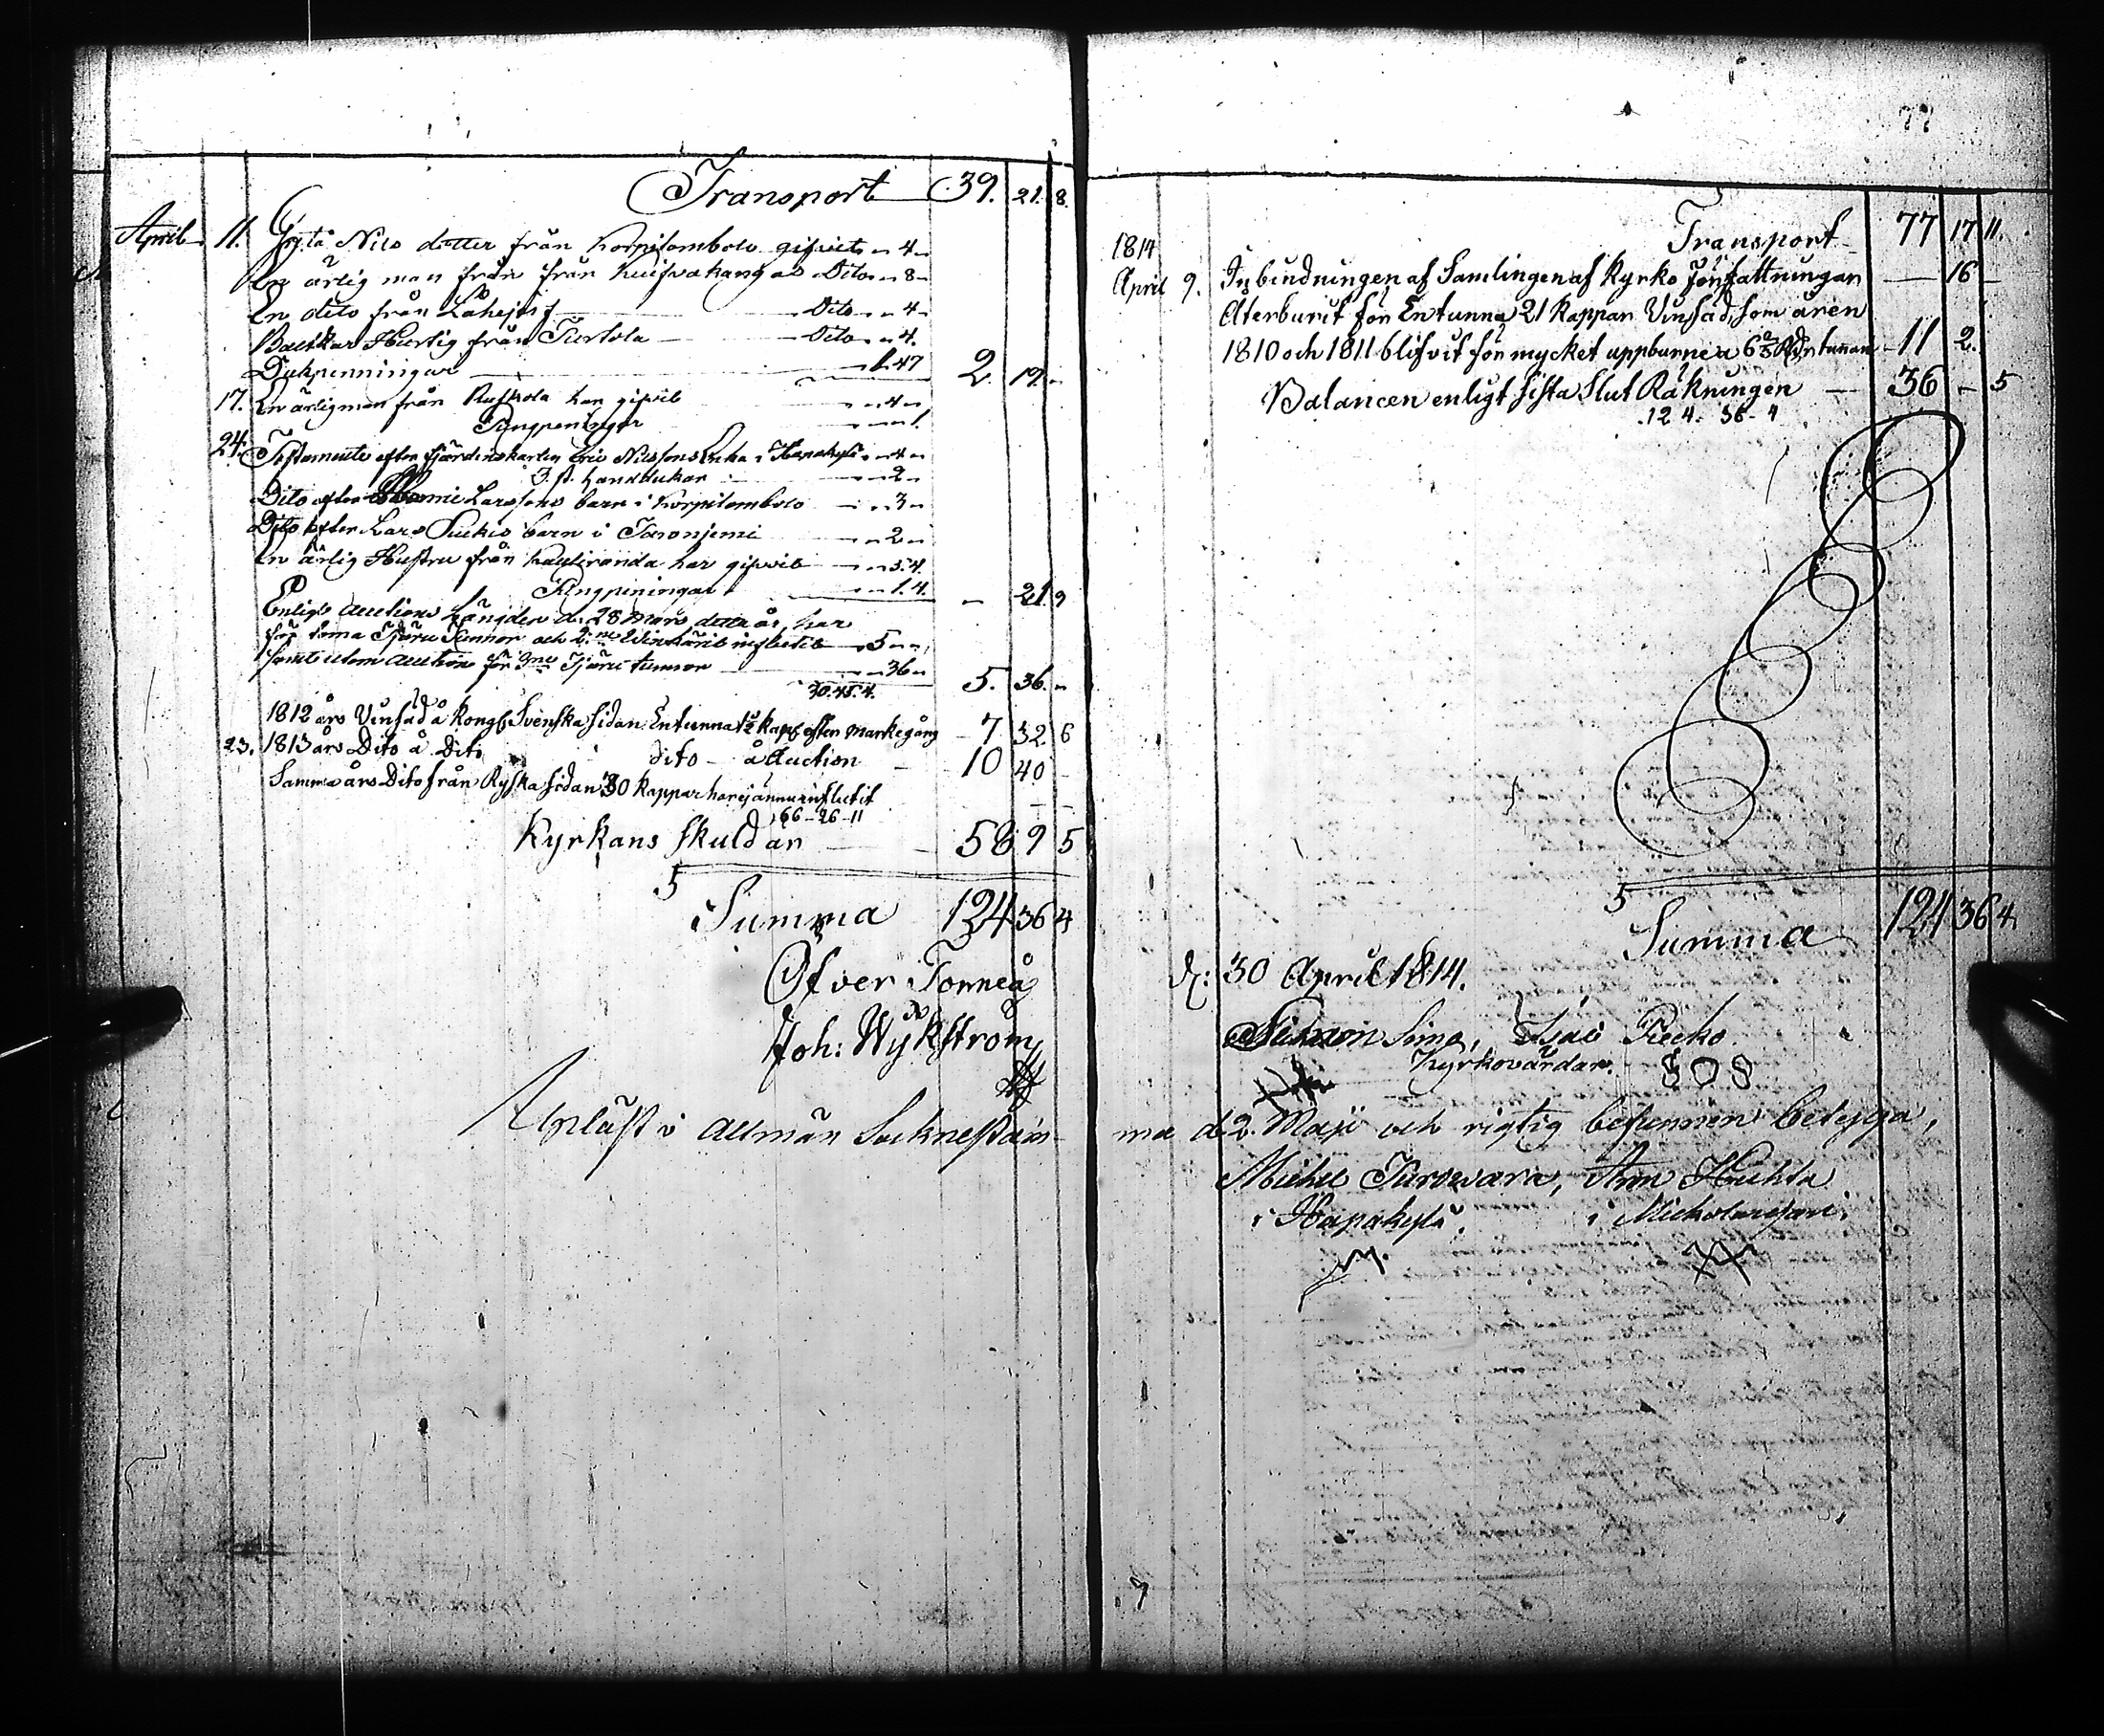 Transport 39. 21. 8.
April 11. Greta Nils dotter från Korpilombolo gifvit " 4 "
En ärlig man från från Kuifvakangas Dito " 8 "
En dito från Dito " 4 "
Balttzar Hurtig från Turtola Dito " 4.
Dukpenningar 1. 47 2. 19. "
17. En ärlig man från Ruskola har gifvit " 4 "
Pungpeningar " 1.
24. Testamente efter fjärdingskarlen Eric Nilssons Enka i Hapakylä " 4 "
3. st. handdukar " 2 "
Dito efter Larssons barn i Korpilombolo " 3 "
Dito efter Lars barn i Juoxenjemi " 2 "
En ärlig Hustru från Kauliranda har gifvit " 5. 4.
Pungpeningar " 1. 4. " 21 9
Enligt Auctions Längden d. 28 Mars detta år, har
för toma Tjäru Tunnor och 2:ne Winkäril influtit 5 " "
samt utom Auction för 3ne Tjäru tunnor " 36 " 5. 36. "
30. 45. 4.
1812 års Vinsäd å Kongl. Svenska sidan En tunna 1½ kapp. efter markegång 7 32 6
23. 1813 års Dito å Dito dito å Auction 10 40
Samma års Dito från Ryska sidan 30 kappar har ej ännu influtit
66 - 26 - 11
Kyrkans skuld är 58 9 5
Summa 124 36 4
Öfver Torneå
Joh: Wykström
Upläst i allmän Socknestäm-
77
Transport 77 17 11.
1814
April 9. Inbindningen af Samlingen af Kyrko Författningar 16
Återburit för En tunna 21 kappar Vinsäd, som åren
1810 och 1811 blifvit för mycket uppburne a 6⅔ Rdr tunnan 11 2.
Balancen enligt sista Slut Räkningen 36 - 5
124 - 36 - 4
Summa 124 36 4
d: 30 April 1814.
Simon Simo, Isac Piecko
Kyrkovärdar.
ma d. 2. Maji och rigtig befunnen betyga,
Michel Turowara, Aron Huhta
i Hapakylä.
i